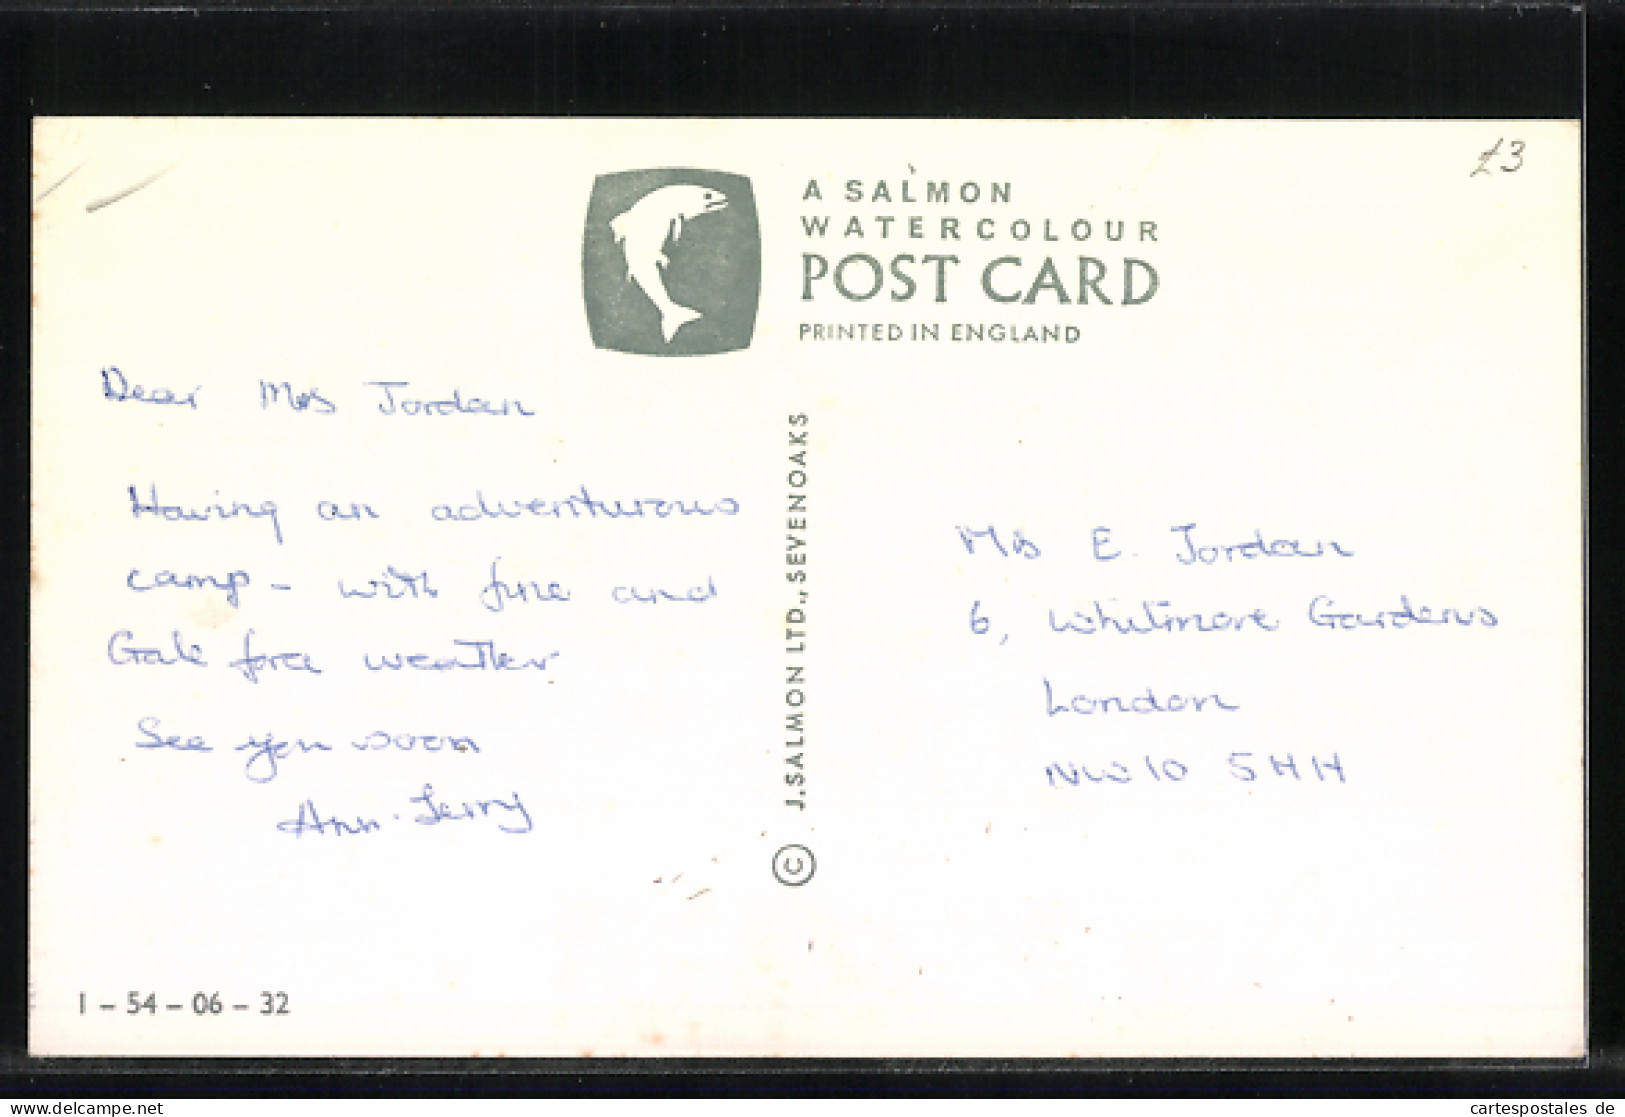 £3
A SALMON
WATERCOLOUR
POST CARD
PRINTED IN ENGLAND
Dear Mrs Jordan
Having an adventurous
camp - with fine and
Gale force weather
See you soon
Ann
J. SALMON LTD., SEVENOAKS ©
Mrs E. Jordan
6, Whitmore Gardens
London
NW10 5HH
1 - 54 - 06 - 32
www.delcampe.net
cartespostales de